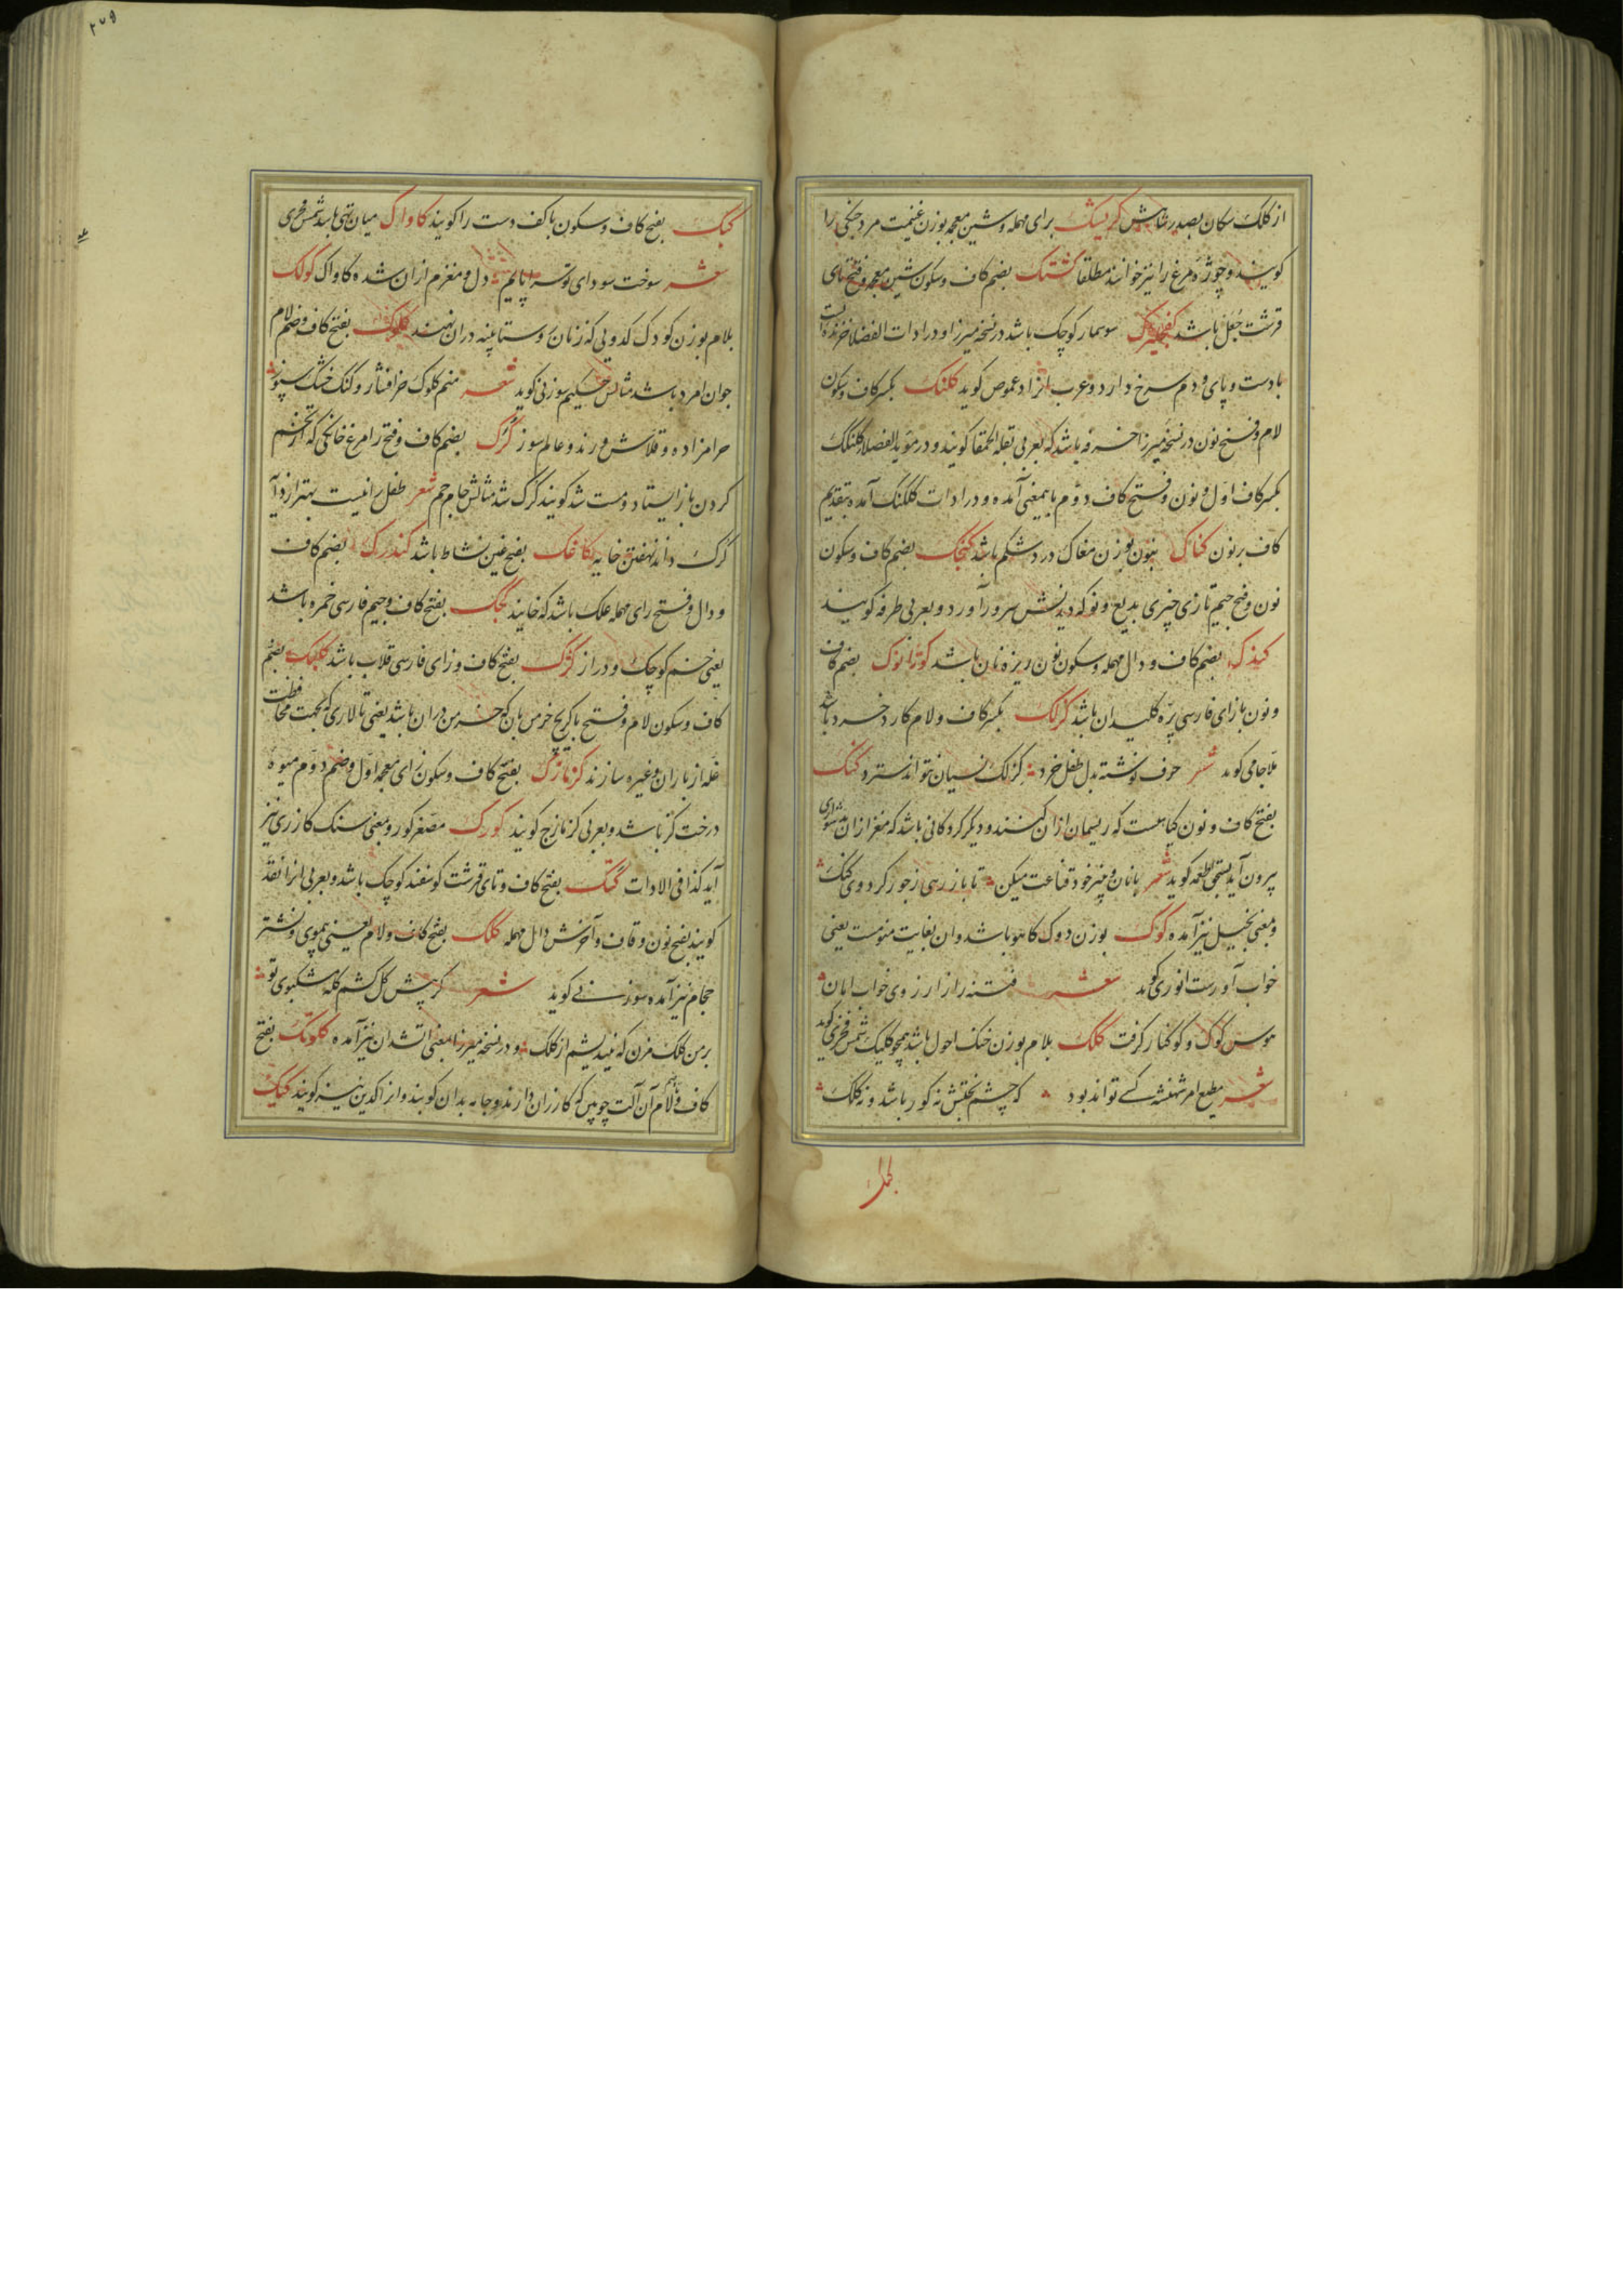 از کلک سکان بصدر شاهش کریشک برای مهمله وشین معجمه بوزن غنیمت مرد جنکی را
کویند وچوژه مرغ را نیز خوانند مطلقا کشتک بضم کاف وسکون شین معجمه وفتح تای
قرشت جعل باشد سوسمار کوچک باشد در نسخه میرزا ودر ادات الفضلا خزنده ایست
با دست وپای ودم سرخ دارد وعرب انرا دعموص کوید کلنک بکسر کاف وسکون
لام وفتح نون در نسخه میرزا خرفه باشد که بعربی بقلة الحمقا کویند ودر موید الفضلا کلنلک
بکسر کاف اول ونون وفتح کاف دوم باینمعنی آمده ودر ادات کلکنک آمده بتقدیم
کاف بر نون کناک بنون بوزن مغاک درد شکم باشد کنجک بضم کاف وسکون
نون وفتح جیم تازی چیزی بدیع ونو که دیدنش سرور آورد وبعربی طرفه کویند
کندک بضم کاف ودال مهمله وسکون نون ریزه نان باشد کوژانوک بضم کاف
ونون بازای فارسی پره کلیدان باشد کزلک بکسر کاف ولام کارد خرد باشد
ملا جامی کوید شعر حرف نوشته بدل طفل خرد کزلک نسیان نتواند سترد کنک
بفتح کاف ونون کیاهیست که ریسمان ازان کنند ودیکر کردکانی باشد که مغز ازان بدشواری
بیرون آید بسحق اطعمه کوید شعر بانان وپنیر خود قناعت میکن تا باز رهی ز جور کردوی کنک
وبمعنی بخیل نیز آمده کوک بوزن دوک کاهو باشد وان بغایت منومست یعنی
خواب آورست انوری کوید شعر فتنه را از ارزوی خواب امان
هوس کوک وکوکنار کرفت کلک بلام بوزن خنک احول باشد همچو کلیک شمس فخری کوید
شعر مطیع امر شهنشه کسے تواند بود که چشم بختش نه کور باشد ونه کلک
کبک بفتح کاف وسکون با کف دست را کویند کاواک میان تهی باشد شمس فخری
شعر سوخت سودای تو سراپایم دل ومغزم ازان شده کاواک کولک
بلام بوزن کودک کدوئی که زنان روستا پنبه دران نهند کلوک بفتح کاف وضم لام
جوان امرد باشد مثالش حکیم سوزنی کوید شعر منم کلوک خرافشار وکنک خشک سپوز
حرامزاده وقلاش ورند وعالم سوز کرک بضم کاف وفتح را مرغ خانکی که از تخم
کردن باز ایستاد ومست شد کویند کرک شد مثالش جام جم شعر طفل را نیست بهتر از دایه
کرک داند نهفتن خایه کاغک بفتح غین نشاط باشد کندرک بضم کاف
ودال وفتح رای مهمله علک باشد که خایند کجک بفتح کاف وجیم فارسی خمره باشد
یعنی خم کوچک ودراز کژک بفتح کاف وزای فارسی قلاب باشد کلبک بضم
کاف وسکون لام وفتح با کریچ خرمن بان که خرمن دران باشد یعنی تالاری که بجهت محافظت
غله از باران وغیره سازند کزمازک بفتح کاف وسکون زای معجمه اول وضم دوم میوه
درخت کز باشد وبعربی کزمازج کویند کورک مصغر کور وبمعنی سنک کازری نیز
آید کذا فی الادات کتک بفتح کاف وتای قرشت کوسفند کوچک باشد وبعربی انرا نقد
کویند بفتح نون وقاف وآخرش دال مهمله کلک بفتح کاف ولام یعنی بموی ونشتر
حجام نیز آمده سوزنے کوید شعر کر پیش کل کشم کله مشکبوی تو
بر من کلک مزن که نیندیشم از کلک ودر نسخه میرزا بمعنی اتشدان نیز آمده کلوتک بفتح
کاف ولام آن آلت چوبین که کازران دارند وجامه بدان کوبند وانرا کدین نیز کویند کیک